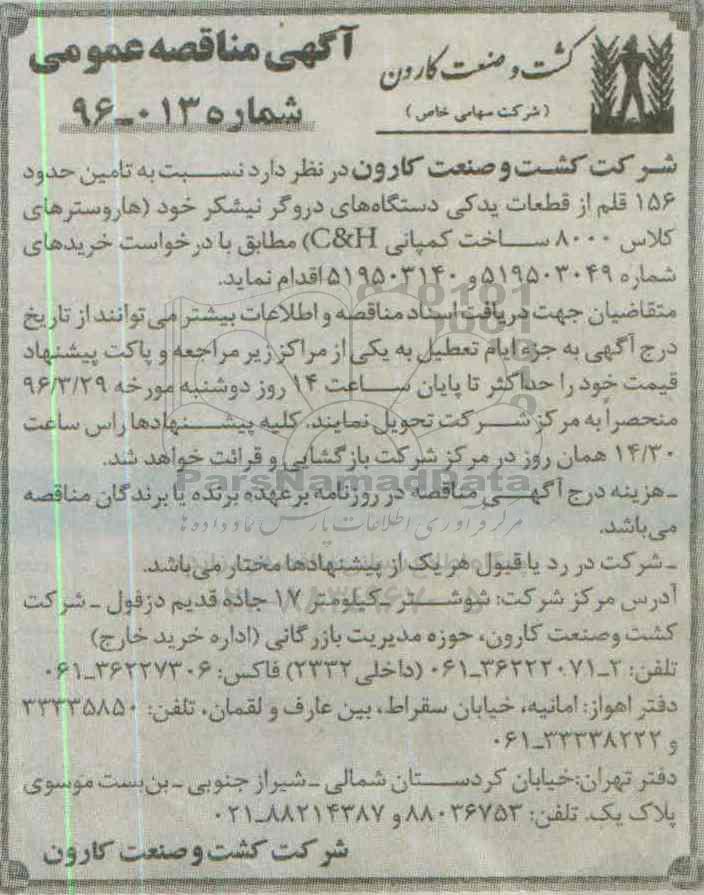 آگهی مناقصه عمومی
شماره ۰۱۳-۹۶
کشت و صنعت کارون
(شرکت سهامی خاص)
شرکت کشت و صنعت کارون در نظر دارد نسبت به تامین حدود
۱۵۶ قلم از قطعات یدکی دستگاه‌های دروگر نیشکر خود (هاروسترهای
کلاس ۸۰۰۰ ساخت کمپانی C&H) مطابق با درخواست خریدهای
شماره ۵۱۹۵۰۳۰۴۹ و ۵۱۹۵۰۳۱۴۰ اقدام نماید.
متقاضیان جهت دریافت اسناد مناقصه و اطلاعات بیشتر می‌توانند از تاریخ
درج آگهی به جزء ایام تعطیل به یکی از مراکز زیر مراجعه و پاکت پیشنهاد
قیمت خود را حداکثر تا پایان ساعت ۱۴ روز دوشنبه مورخه ۹۶/۳/۲۹
منحصراً به مرکز شرکت تحویل نمایند. کلیه پیشنهادها راس ساعت
۱۴/۳۰ همان روز در مرکز شرکت بازگشایی و قرائت خواهد شد.
ParsNamadData
ـ هزینه درج آگهی مناقصه در روزنامه بر عهده برنده یا برندگان مناقصه
می‌باشد.
مرکز فرآوری اطلاعات پارس نماد داده ها
ـ شرکت در رد یا قبول هر یک از پیشنهادها مختار می‌باشد.
آدرس مرکز شرکت: شوشتر ـ کیلومتر ۱۷ جاده قدیم دزفول ـ شرکت
کشت و صنعت کارون، حوزه مدیریت بازرگانی (اداره خرید خارج)
تلفن: ۲ـ۳۶۲۲۲۰۷۱ـ۰۶۱ (داخلی ۲۳۳۲) فاکس: ۳۶۲۲۷۳۰۶ـ۰۶۱
دفتر اهواز: امانیه، خیابان سقراط، بین عارف و لقمان، تلفن: ۳۳۳۳۵۸۵۰
و ۳۳۳۳۸۲۲۲ـ۰۶۱
دفتر تهران: خیابان کردستان شمالی ـ شیراز جنوبی ـ بن‌بست موسوی
پلاک یک. تلفن: ۸۸۰۳۶۷۵۳ و ۸۸۲۱۴۳۸۷ـ۰۲۱
شرکت کشت و صنعت کارون